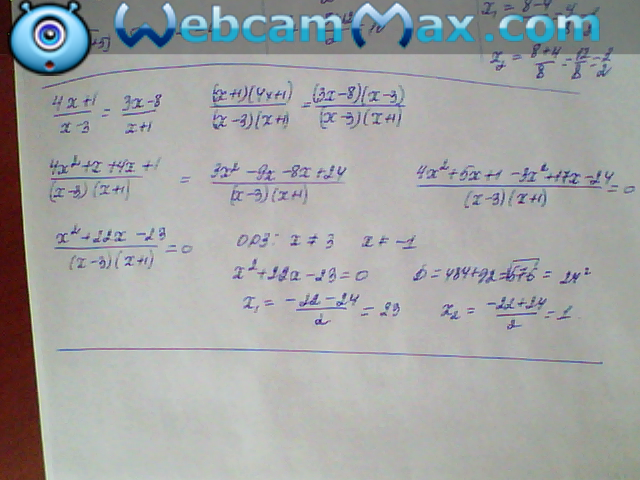 WebcamMax.com
x₁ = 8-4
x₂ = (8+4)/8 = 12/8 =
(4x+1)/(x-3) = (3x-8)/(x+1)   ((x+1)(4x+1))/((x-3)(x+1)) = ((3x-8)(x-3))/((x-3)(x+1))
(4x²+x+4x+1)/((x-3)(x+1)) = (3x²-9x-8x+24)/((x-3)(x+1))   (4x²+5x+1-3x²+17x-24)/((x-3)(x+1)) = 0
(x²+22x-23)/((x-3)(x+1)) = 0   ОДЗ: x ≠ 3   x ≠ -1
x²+22x-23=0   D = 484+92 = 576 = 24²
x₁ = (-22-24)/2 = 23   x₂ = (-22+24)/2 = 1